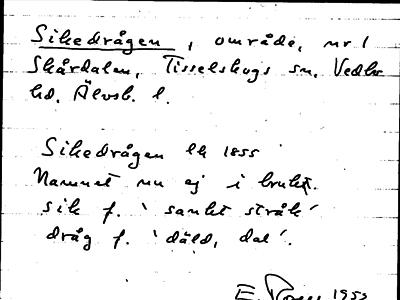 Sikedrågen, område, nr 1
Skårdalen, Tisselskogs sn. Vedbo
hd. Älvsb. l.
Sikedrågen lk 1855
Namnet nu ej i bruk.
sik f. 'sankt stråk'
dråg f. 'däld, dal'.
E. 1953